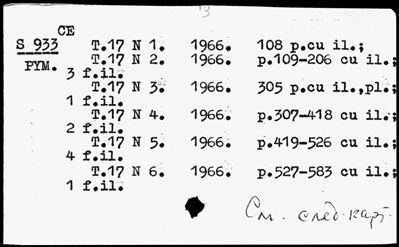 13
CE
S 933 T.17 N 1. 1966. 108 p.cu il.;
PYM. T.17 N 2. 1966. p.109-206 cu il.;
3 f.il.
T.17 N 3. 1966. 305 p.cu il.,pl.;
1 f.il.
T.17 N 4. 1966. p.307-418 cu il.;
2 f.il.
T.17 N 5. 1966. p.419-526 cu il.;
4 f.il.
T.17 N 6. 1966. p.527-583 cu il.;
1 f.il.
См. след. карт.